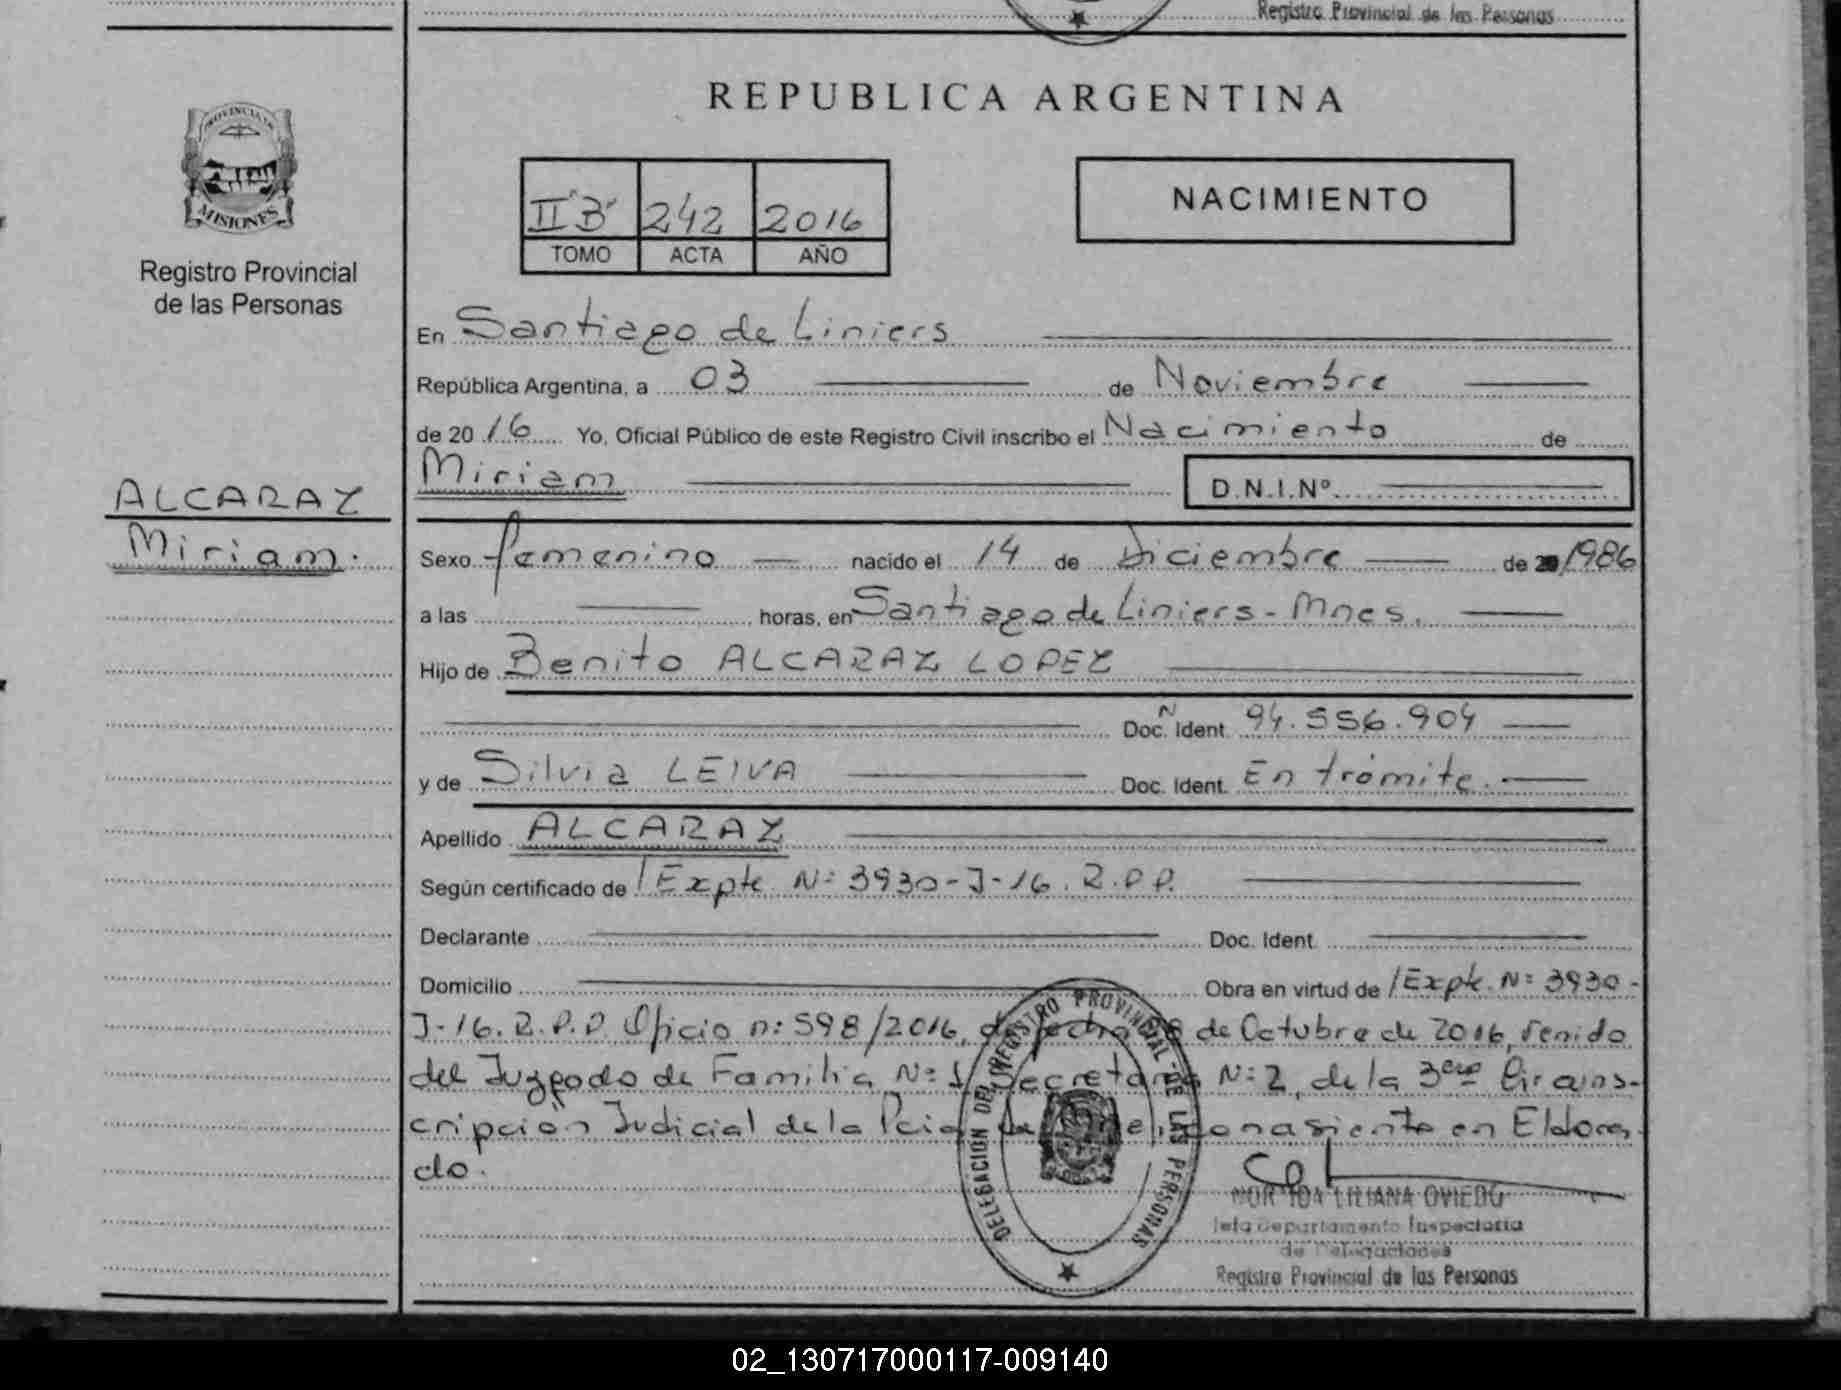 Registro Provincial de las Personas
REPUBLICA ARGENTINA
PROVINCIA DE
MISIONES
Registro Provincial
de las Personas
II "B" 242 2016
TOMO ACTA AÑO
NACIMIENTO
En Santiago de Liniers
República Argentina, a 03 de Noviembre
de 2016 Yo, Oficial Público de este Registro Civil inscribo el Nacimiento de
Miriam D.N.I.Nº
ALCARAZ
Miriam.
Sexo femenino nacido el 14 de Diciembre de 1986
a las horas, en Santiago de Liniers - Mnes.
Hijo de Benito ALCARAZ LOPEZ
Doc. N Ident. 94.556.904
y de Silvia LEIVA Doc. Ident. En trámite.
Apellido ALCARAZ
Según certificado de Expte. Nº 3930-J-16. R.P.P.
Declarante Doc. Ident.
Domicilio Obra en virtud de Expte. Nº 3930-
J-16. R.P.P. Oficio nº 598/2016, de fecha de Octubre de 2016, venido
del Juzgado de Familia Nº 1 Secretaria Nº 2, de la 3era Circuns-
cripción Judicial de la Pcia de con asiento en Eldora-
do.
DELEGACION DEL REGISTRO PROVINCIAL DE LAS PERSONAS
LILIANA OVIEDO
Jefa Departamento Inspectoria
de Delegaciones
Registro Provincial de las Personas
02_130717000117-009140